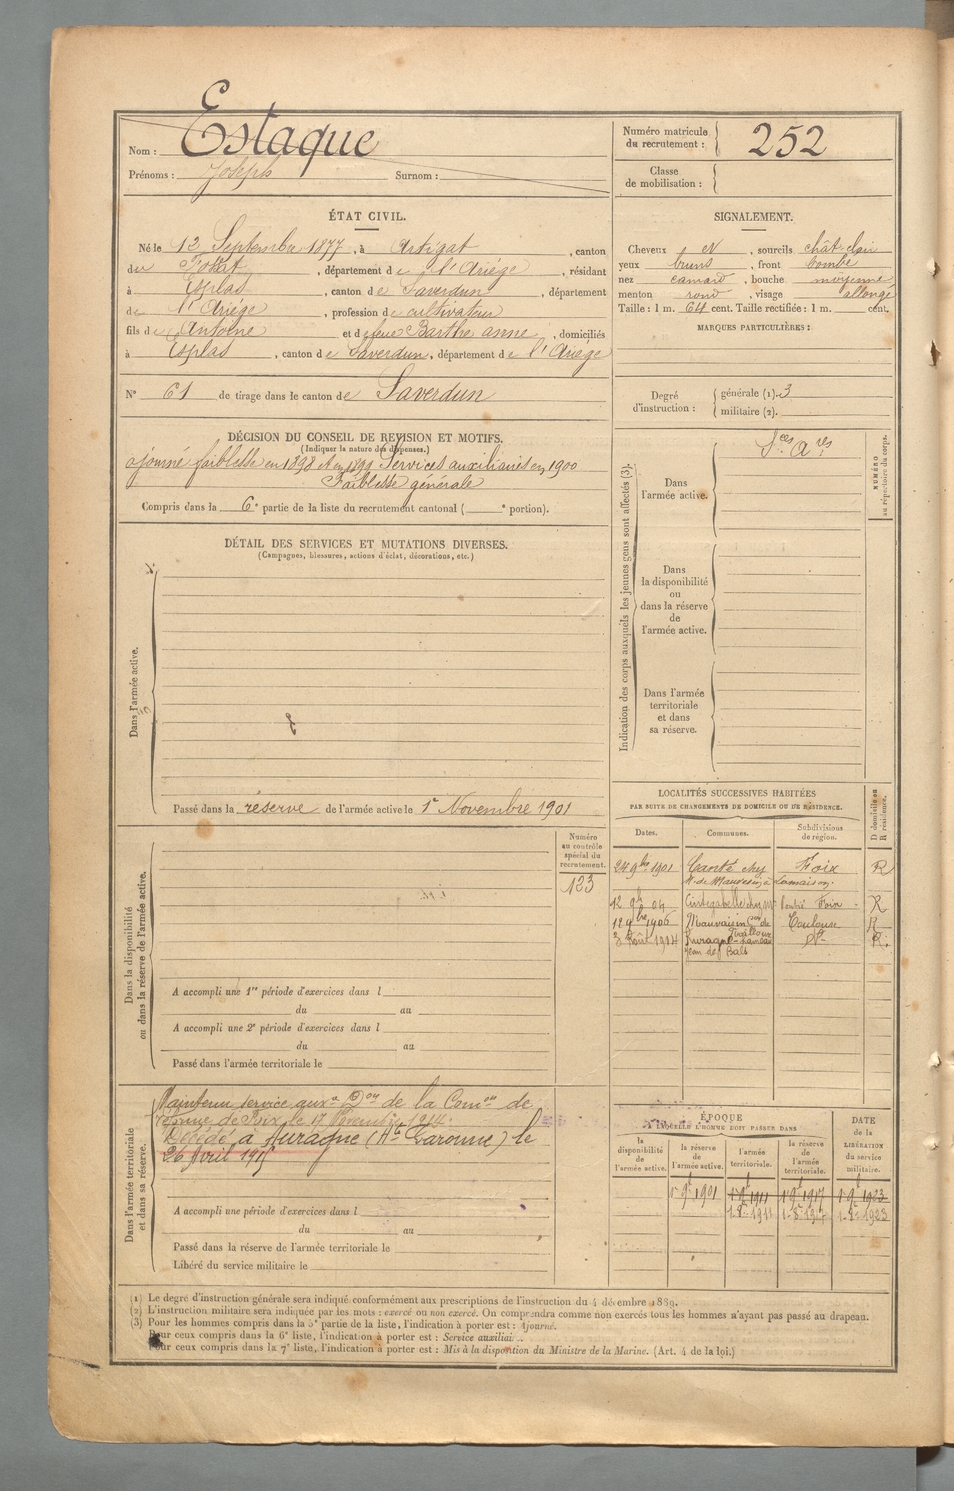 Nom : Estaque
Prénoms : Joseph Surnom :
Numéro matricule du recrutement : 252
Classe de mobilisation :
ÉTAT CIVIL.
Né le 12 Septembre 1877, à Artigat, canton
du Fossat, département de l'Ariège, résidant
à Esplas, canton de Saverdun, département
de l'Ariège, profession de cultivateur
fils de Antoine et de feue Barthe anne, domiciliés
à Esplas, canton de Saverdun, département de l'Ariège
N° 61 de tirage dans le canton de Saverdun
SIGNALEMENT.
Cheveux et, sourcils chât. clair
yeux bruns, front bombé
nez camard, bouche moyenne
menton rond, visage allongé
Taille : 1 m. 64 cent. Taille rectifiée : 1 m. cent.
MARQUES PARTICULIÈRES :
Degré d'instruction : générale (1). 3
militaire (2).
DÉCISION DU CONSEIL DE REVISION ET MOTIFS.
(Indiquer la nature des dispenses.)
ajourné faiblesse en 1898 et en 1899 Services auxiliaires en 1900
Faiblesse générale
Compris dans la 6e partie de la liste du recrutement cantonal ( e portion).
DÉTAIL DES SERVICES ET MUTATIONS DIVERSES.
(Campagnes, blessures, actions d'éclat, décorations, etc.)
Dans l'armée active.
Passé dans la réserve de l'armée active le 1er Novembre 1901
Indication des corps auxquels les jeunes gens sont affectés (3).
NUMÉRO au répertoire du corps.
Sces Ares
Dans l'armée active.
Dans la disponibilité ou dans la réserve de l'armée active.
Dans l'armée territoriale et dans sa réserve.
LOCALITÉS SUCCESSIVES HABITÉES
PAR SUITE DE CHANGEMENTS DE DOMICILE OU DE RÉSIDENCE.
D domicile ou R résidence.
Dates. Communes. Subdivisions de région.
24 9bre 1901 Canté chez Foix R
M. de Mauvesin à Lamaison.
12 04 Cintegabelle chez Foix R
12 9bre 1906 Mauvaisin Toulouse R
3 Août 1914 Auragne dº R.
Jean de Balt
Numéro au contrôle spécial du recrutement.
123
Dans la disponibilité ou dans la réserve de l'armée active.
A accompli une 1re période d'exercices dans l
du au
A accompli une 2e période d'exercices dans l
du au
Passé dans l'armée territoriale le
Dans l'armée territoriale et dans sa réserve.
Maintenu service auxre Don de la Comon de
réforme de Foix le 17 Novembre 1914.
Décédé à Auragne (Hte Garonne) le
26 Avril 1915
A accompli une période d'exercices dans l
du au
Passé dans la réserve de l'armée territoriale le
Libéré du service militaire le
ÉPOQUE
A LAQUELLE L'HOMME DOIT PASSER DANS
DATE de la LIBÉRATION du service militaire.
la disponibilité de l'armée active. la réserve de l'armée active. l'armée territoriale. la réserve de l'armée territoriale.
1901 1911 1917 1923
1-8-1911 1-8-1917 1-8-1923
(1) Le degré d'instruction générale sera indiqué conformément aux prescriptions de l'instruction du 4 décembre 1889.
(2) L'instruction militaire sera indiquée par les mots : exercé ou non exercé. On comprendra comme non exercés tous les hommes n'ayant pas passé au drapeau.
(3) Pour les hommes compris dans la 5e partie de la liste, l'indication à porter est : Ajourné.
Pour ceux compris dans la 6e liste, l'indication à porter est : Service auxiliai
Pour ceux compris dans la 7e liste, l'indication à porter est : Mis à la disposition du Ministre de la Marine. (Art. 4 de la loi.)